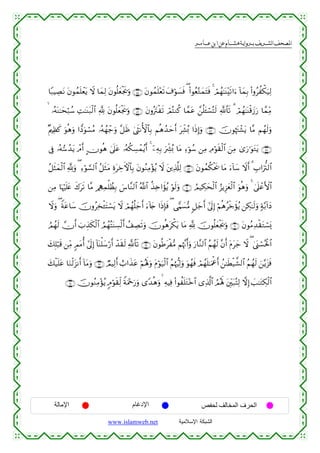 المصحف الشريف برواية هشام عن ابن عامر
لِيَكْفُرُوا۟ بِمَآ ءَاتَيْنَٰهُمْ ۚ فَتَمَتَّعُوا۟ ۖ فَسَوْفَ تَعْلَمُونَ وَيَجْعَلُونَ لِمَا لَا يَعْلَمُونَ نَصِيبًا
مِّمَّا رَزَقْنَٰهُمْ ۗ تَٱللَّهِ لَتُسْـَٔلُنَّ عَمَّا كُنتُمْ تَفْتَرُونَ وَيَجْعَلُونَ لِلَّهِ ٱلْبَنَٰتِ سُبْحَٰنَهُۥ ۙ
وَلَهُم مَّا يَشْتَهُونَ وَإِذَا بُشِّرَ أَحَدُهُم بِٱلْأُنثَىٰ ظَلَّ وَجْهُهُۥ مُسْوَدًّا وَهُوَ كَظِيمٌ
يَتَوَٰرَىٰ مِنَ ٱلْقَوْمِ مِن سُوٓءِ مَا بُشِّرَ بِهِۦٓ ۚ أَيُمْسِكُهُۥ عَلَىٰ هُونٍ أَمْ يَدُسُّهُۥ فِى
ٱلتُّرَابِ ۗ أَلَا سَآءَ مَا يَحْكُمُونَ لِلَّذِينَ لَا يُؤْمِنُونَ بِٱلْءَاخِرَةِ مَثَلُ ٱلسَّوْءِ ۖ وَلِلَّهِ ٱلْمَثَلُ
ٱلْأَعْلَىٰ ۚ وَهُوَ ٱلْعَزِيزُ ٱلْحَكِيمُ وَلَوْ يُؤَاخِذُ ٱللَّهُ ٱلنَّاسَ بِظُلْمِهِم مَّا تَرَكَ عَلَيْهَا مِن
دَآبَّةٍ وَلَٰكِن يُؤَخِّرُهُمْ إِلَىٰٓ أَجَلٍ مُّسَمًّى ۖ فَإِذَا جَآءَ أَجَلُهُمْ لَا يَسْتَـْٔخِرُونَ سَاعَةً ۖ وَلَا
يَسْتَقْدِمُونَ وَيَجْعَلُونَ لِلَّهِ مَا يَكْرَهُونَ وَتَصِفُ أَلْسِنَتُهُمُ ٱلْكَذِبَ أَنَّ لَهُمُ
ٱلْحُسْنَىٰ ۖ لَا جَرَمَ أَنَّ لَهُمُ ٱلنَّارَ وَأَنَّهُم مُّفْرَطُونَ تَٱللَّهِ لَقَدْ أَرْسَلْنَآ إِلَىٰٓ أُمَمٍ مِّن قَبْلِكَ
فَزَيَّنَ لَهُمُ ٱلشَّيْطَٰنُ أَعْمَٰلَهُمْ فَهُوَ وَلِيُّهُمُ ٱلْيَوْمَ وَلَهُمْ عَذَابٌ أَلِيمٌ وَمَآ أَنزَلْنَا عَلَيْكَ
ٱلْكِتَٰبَ إِلَّا لِتُبَيِّنَ لَهُمُ ٱلَّذِى ٱخْتَلَفُوا۟ فِيهِ ۙ وَهُدًى وَرَحْمَةً لِّقَوْمٍ يُؤْمِنُونَ
الحرف المخالف لحفص الإدغام الإمالة
الشبكة الإسلامية www.islamweb.net